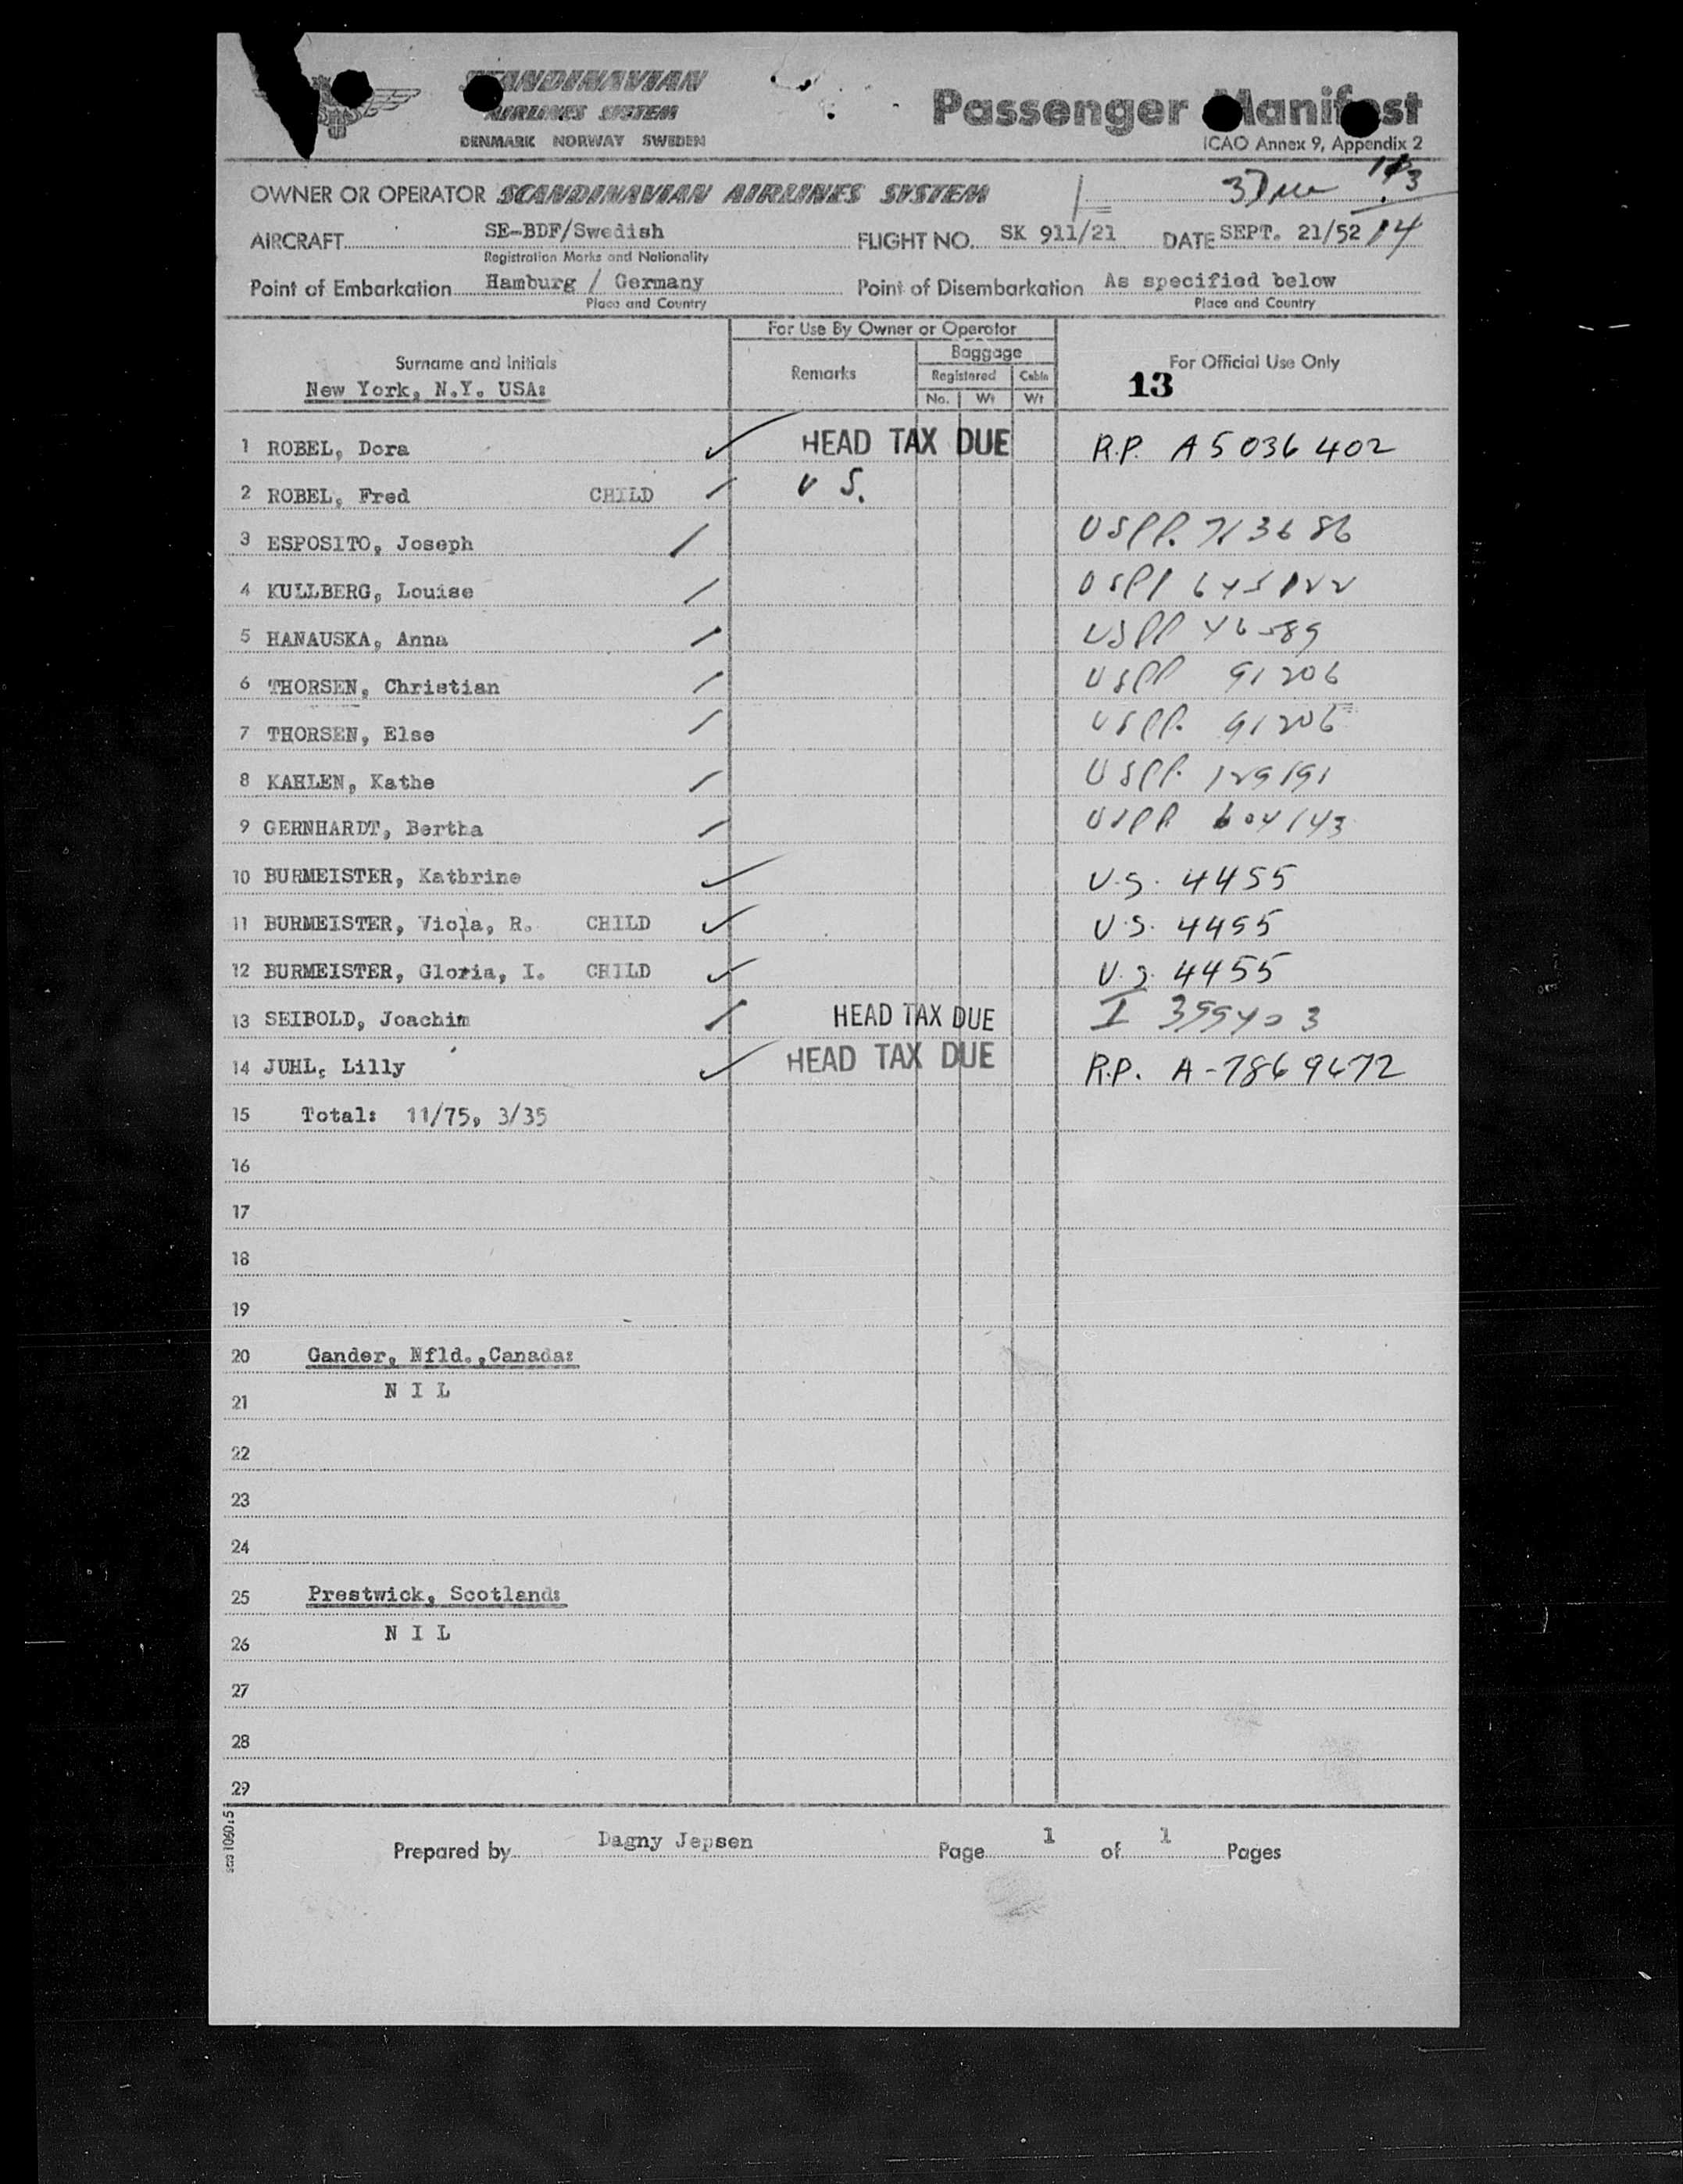 SCANDINAVIAN
AIRLINES SYSTEM
DENMARK NORWAY SWEDEN
Passenger Manifest
ICAO Annex 9, Appendix 2
OWNER OR OPERATOR SCANDINAVIAN AIRLINES SYSTEM
AIRCRAFT SE-BDF/Swedish FLIGHT NO. SK 911/21 DATE SEPT. 21/52 14
Registration Marks and Nationality
Point of Embarkation Hamburg / Germany Point of Disembarkation As specified below
Place and Country Place and Country
For Use By Owner or Operator
Surname and Initials Remarks Baggage For Official Use Only
Registered Cabin
New York, N.Y. USA: 13
No. Wt Wt
1 ROBEL, Dora HEAD TAX DUE R.P. A5036402
2 ROBEL, Fred CHILD U S.
3 ESPOSITO, Joseph USPP. 713686
4 KULLBERG, Louise USPP
5 HANAUSKA, Anna USPP 46589
6 THORSEN, Christian USPP 91206
7 THORSEN, Else USPP. 91206
8 KAHLEN, Kathe USPP. 129191
9 GERNHARDT, Bertha USPP 604143
10 BURMEISTER, Kathrine U.S. 4455
11 BURMEISTER, Viola, R. CHILD U.S. 4455
12 BURMEISTER, Gloria, I. CHILD U.S. 4455
13 SEIBOLD, Joachim HEAD TAX DUE I
14 JUHL, Lilly HEAD TAX DUE R.P. A-7869672
15 Total: 11/75, 3/35
16
17
18
19
20 Gander, Nfld.,Canada:
N I L
21
22
23
24
25 Prestwick, Scotland:
N I L
26
27
28
29
sas 1060:5
Prepared by Dagny Jepsen Page 1 of 1 Pages